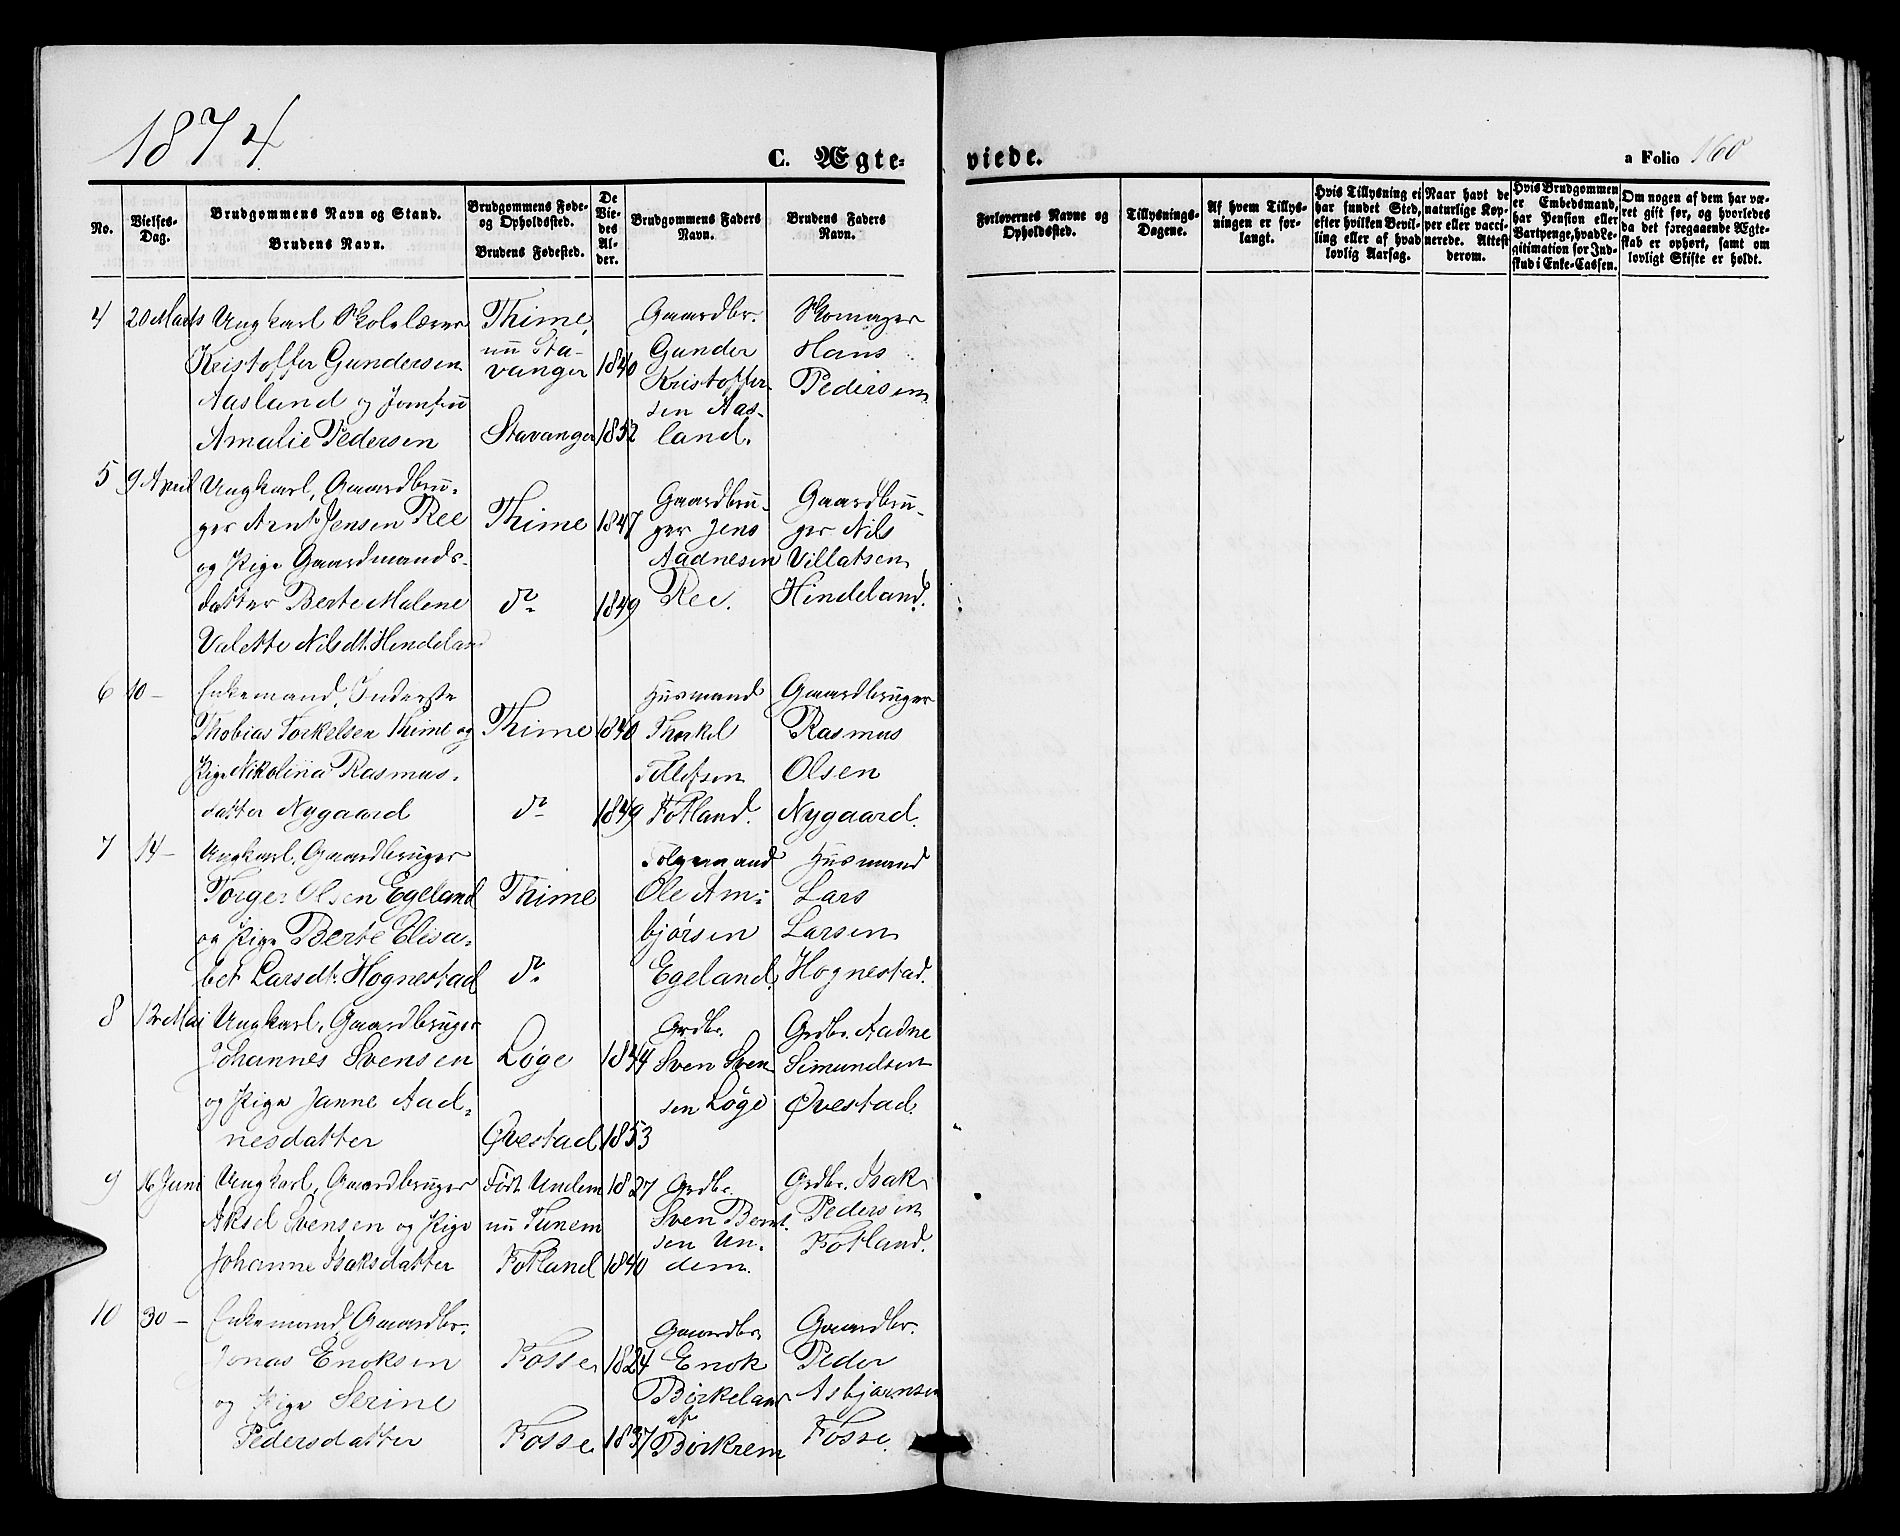 1874.
C. Ægte=
viede.
a Folio 160
No.
Vielses-Dag.
Brudgommens Navn og Stand.
Brudens Navn.
Brudgommens Føde- og Opholdssted.
Brudens Fødested.
De Viedes Alder.
Brudgommens Faders Navn.
Brudens Faders Navn.
Forlovernes Navne og Opholdssted.
Tillysnings-Dagene.
Af hvem Tillysningen er forlangt.
Hvis Tillysning ei har fundet Sted, efter hvilken Bevilling eller af hvad lovlig Aarsag.
Naar havt de naturlige Kopper eller vaccinerede. Attest derom.
Hvis Brudgommen er Embedsmand, har Pension eller Vartpenge, hvad Legitimation for Indskud i Enke-Cassen.
Om nogen af dem har været gift før, og hvorledes da det foregaaende Ægteskab er ophørt, samt om lovligt Skifte er holdt.
4 20 Marts Ungkarl Skolelærer Thime, Gaardbr. Skomager
Kristoffer Gundersen nu Stavanger 1840 Gunder Hans
Aasland og Jomfru Kristoffersen Pedersen
Amalie Pedersen Stavanger 1852 Aasland.
5 9 April Ungkarl, Gaardbru-
ger Arnt Jensen Ree Thime 1847 Gaardbruger Jens Gaardbruger Nils
og Pige Gaardmands- Aadnesen Villatsen
datter Berte Malene do 1849 Ree. Hindeland.
Valette Nilsdt. Hendeland
6 10 - Enkemand, Inderste Husmand Gaardbruger
Thobias Torkelsen Thime og Thime 1840 Thorkel Rasmus
Pige Nikoline Rasmus- Tollefsen Olsen
datter Nygaard do 1849 Fotland. Nygaard.
7 14 - Ungkarl, Gaardbruger Folgemand Husmand
Torger Olsen Egeland Thime Ole Am- Lars
og Pige Berte Elisa- bjørsen Larsen
bet Larsdt. Hognestad do Egeland. Hognestad.
8 12 Mai Ungkarl, Gaardbruger Grdbr. Grdbr. Aadne
Johannes Svensen Løge 1844 Sven Sven- Simundsen
og Pige Janne Aad- sen Løge Qvestad.
nesdatter Qvestad 1853
9 16 Juni Ungkarl, Gaardbruger Født Undem 1827 Grdbr. Grdbr. Isak
Aksel Svensen og Pige nu Tunem Sven Bernt- Pedersen
sen Un- Fotland.
Johanne Isaksdatter Fotland 1840 dem.
10 30 - Enkemand, Gaardbr. Gaardbr. Gaardbr.
Jonas Enoksen Fosse 1824 Enok Peder
og Pige Serine Birkeland Asbjørnsen
Pedersdatter Fosse 1837 af Birkrem Fosse.